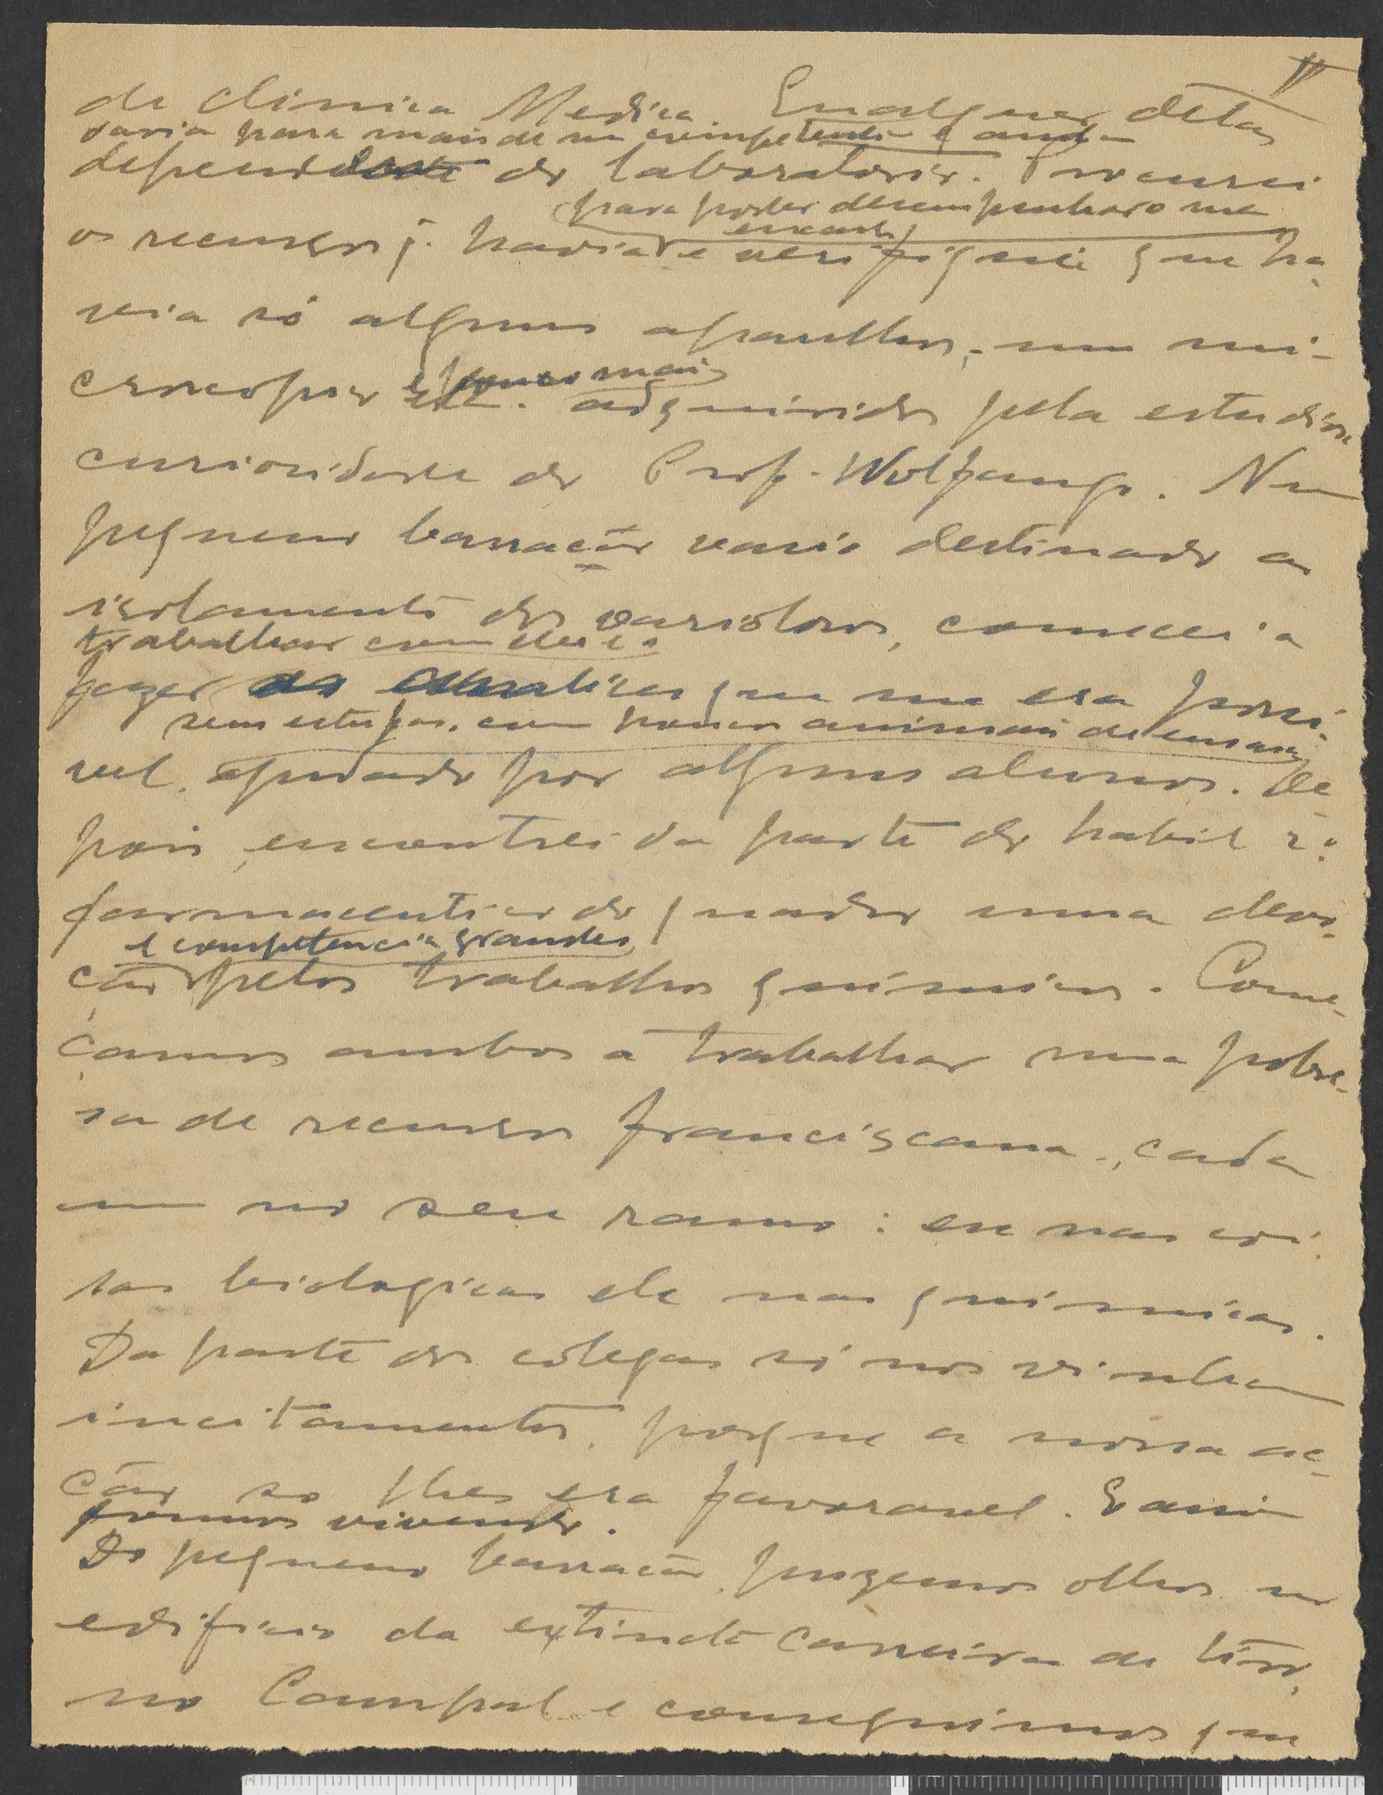 IV
de Clinica Medica. Qualquer delas
daria para mais de um competente e ainda
dependente do laboratorio. Procurei
para poder desempenhar o meu
encargo
os recursos q. havia e verifiquei que ha-
via só alguns aparelhos, um mi-
croscopio e pouco mais adquirido pela estudiosa
curiosidade do Prof. Wolfango. Num
pequeno barracão vasio destinado a
isolamento dos variolosos, comecei a
trabalhar com
fazer que me era possi-
sem estufas, com poucos animais de ensaio
vel, ajudado por alguns alunos. De-
pois encontrei da parte do habil 2º
farmaceutico do quadro uma devo-
e competencia grandes
ção pelos trabalhos quimicos. Come-
çamos ambos a trabalhar numa pobre-
sa de recursos franciscana, cada
um no seu ramo: eu nas coi-
sas biologicas ele nas quimicas.
Da parte dos colegas só nos vinham
incitamentos, porque a nossa ac-
ção só lhes era favoravel. E assim
fomos vivendo.
Do pequeno barracão, puzemos olhos no
edificio da extinta Carreira de tiro,
no Campal e conseguimos que